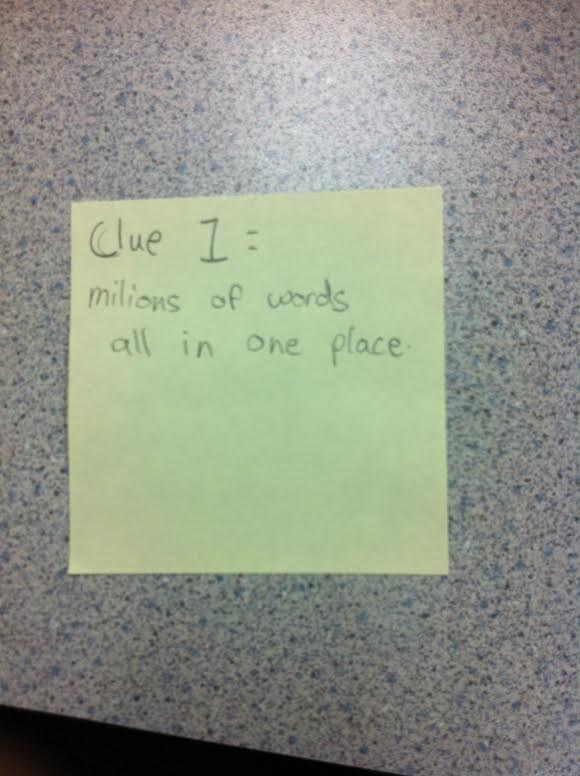 Clue 1 =
milions of words
all in one place.